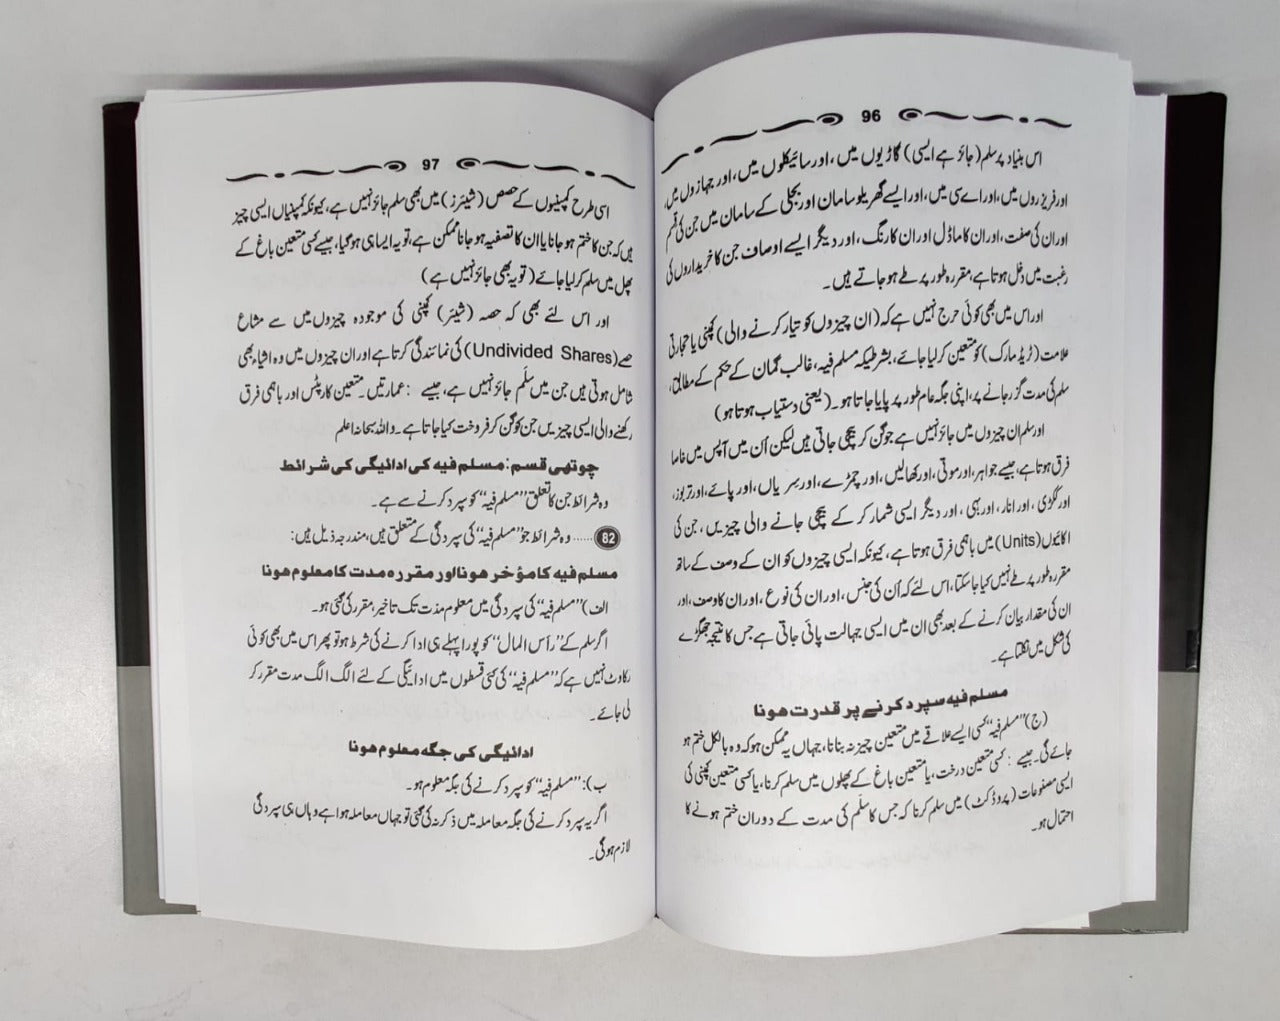 96
اس بنیاد پر سلم (جائز ہے ایسی) گاڑیوں میں، اور سائیکلوں میں، اور جہازوں میں،
اور فریزروں میں، اور اے سی میں، اور ایسے گھریلو سامان اور بجلی کے سامان میں جن کی قسم
اور ان کی صفت، اور ان کا ماڈل اور ان کا رنگ، اور دیگر ایسے اوصاف جن کا خریداروں کی
رغبت میں دخل ہوتا ہے، مقررہ طور پر طے ہو جاتے ہیں۔
اور اس میں بھی کوئی حرج نہیں ہے کہ (ان چیزوں کو تیار کرنے والی) کمپنی یا تجارتی
علامت (ٹریڈ مارک) کو متعین کر لیا جائے، بشرطیکہ مسلم فیہ، غالب گمان کے حکم کے مطابق،
سلم کی مدت گزر جانے پر، اپنی جگہ عام طور پر پایا جاتا ہو۔ (یعنی دستیاب ہوتا ہو)
اور سلم ان چیزوں میں جائز نہیں ہے جو گن کر بیچی جاتی ہیں لیکن اُن میں آپس میں خاصا
فرق ہوتا ہے، جیسے جواہر، اور موتی، اور کھالیں، اور چمڑے، اور سِریاں، اور پائے، اور تربوز،
اور ککڑی، اور انار، اور بہی، اور دیگر ایسی شمار کر کے بیچی جانے والی چیزیں، جن کی
اکائیوں (Units) میں باہمی فرق ہوتا ہے، کیونکہ ایسی چیزوں کو ان کے وصف کے ساتھ
مقررہ طور پر طے نہیں کیا جا سکتا، اس لئے کہ اُن کی جنس، اور ان کی نوع، اور ان کا وصف، اور
ان کی مقدار بیان کرنے کے بعد بھی ان میں ایسی جہالت پائی جاتی ہے جس کا نتیجہ جھگڑے
کی شکل میں نکلتا ہے۔
مسلم فیہ سپرد کرنے پر قدرت ہونا
(ج) ”مسلم فیہ“ کسی ایسے علاقے میں متعین چیز نہ بنانا، جہاں یہ ممکن ہو کہ وہ بالکل ختم ہو
جائے گی۔ جیسے: کسی متعین درخت، یا متعین باغ کے پھلوں میں سلم کرنا، یا کسی متعین کمپنی کی
ایسی مصنوعات (پروڈکٹ) میں سلم کرنا کہ جس کا سلَم کی مدت کے دوران ختم ہونے کا
احتمال ہو۔
97
اسی طرح کمپنیوں کے حصص (شیئرز) میں بھی سلم جائز نہیں ہے، کیونکہ کمپنیاں ایسی چیز
ہیں کہ جن کا ختم ہو جانا یا ان کا تصفیہ ہو جانا ممکن ہے، تو یہ ایسا ہی ہو گیا، جیسے کسی متعین باغ کے
پھل میں سلم کر لیا جائے (تو یہ بھی جائز نہیں ہے)
اور اس لئے بھی کہ حصہ (شیئر) کمپنی کی موجودہ چیزوں میں سے مشاع
حصے (Undivided Shares) کی نمائندگی کرتا ہے اور ان چیزوں میں وہ اشیاء بھی
شامل ہوتی ہیں جن میں سلَم جائز نہیں ہے، جیسے: عمارتیں۔ متعین کارپٹس اور باہمی فرق
رکھنے والی ایسی چیزیں جن کو گن کر فروخت کیا جاتا ہے۔ واللہ سبحانہ اعلم
چوتھی قسم: مسلم فیہ کی ادائیگی کی شرائط
وہ شرائط جن کا تعلق ”مسلم فیہ“ کو سپرد کرنے سے ہے۔
82 ...... وہ شرائط جو ”مسلم فیہ“ کی سپردگی کے متعلق ہیں، مندرجہ ذیل ہیں:
مسلم فیہ کا مؤخر ہونا اور مقررہ مدت کا معلوم ہونا
الف) ”مسلم فیہ“ کی سپردگی میں معلوم مدت تک تاخیر مقرر کی گئی ہو۔
اگر سلم کے ”رأس المال“ کو پورا پہلے ہی ادا کرنے کی شرط ہو تو پھر اس میں بھی کوئی
رکاوٹ نہیں ہے کہ ”مسلم فیہ“ کی کئی قسطوں میں ادائیگی کے لئے الگ الگ مدت مقرر کر
لی جائے۔
ادائیگی کی جگہ معلوم ہونا
ب): ”مسلم فیہ“ کو سپرد کرنے کی جگہ معلوم ہو۔
اگر یہ سپرد کرنے کی جگہ معاملہ میں ذکر نہ کی گئی تو جہاں معاملہ ہوا ہے وہاں ہی سپردگی
لازم ہو گی۔